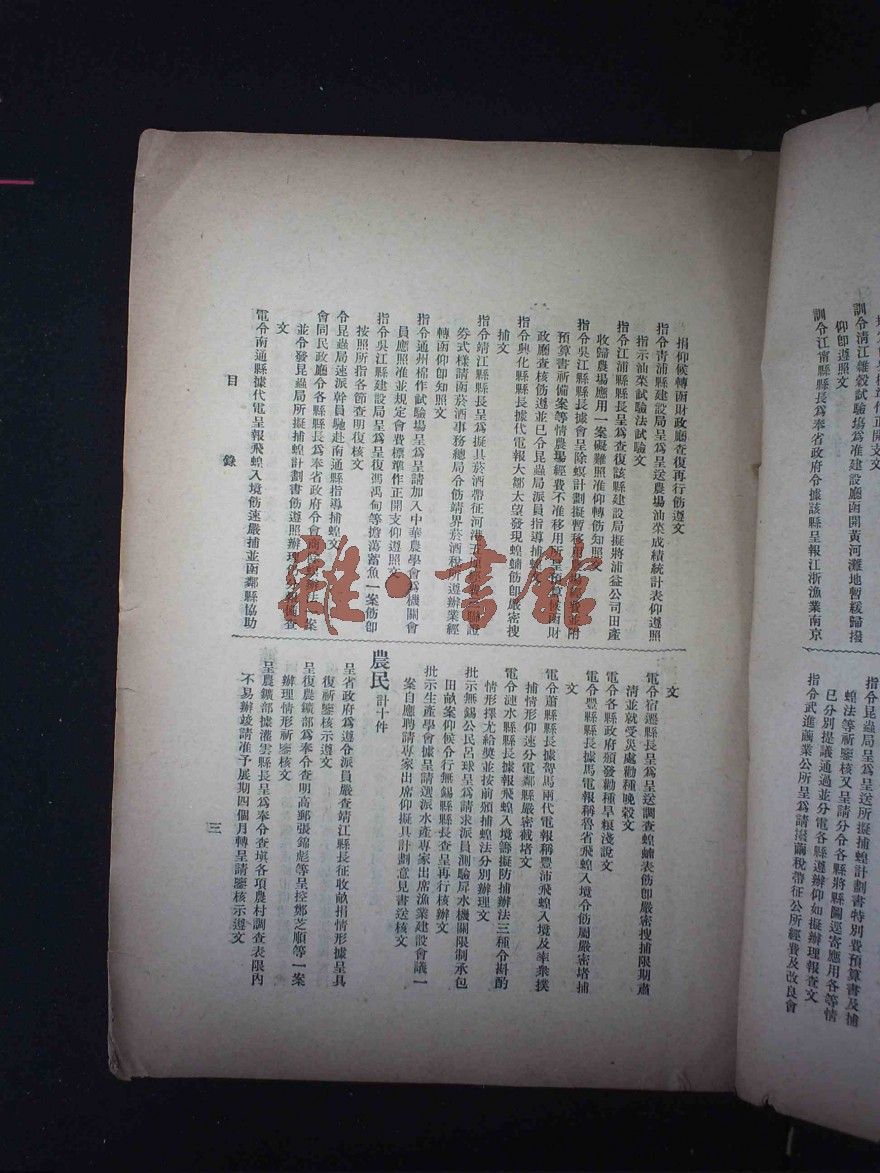 訓令清江雜穀試驗場爲准建設廳函開黃河灘地暫緩歸撥
仰卽遵照文
訓令江甯縣縣長爲奉省政府令據該縣呈報江浙漁業南京
指令昆蟲局呈爲呈送所擬捕蝗計劃書特別費預算書及捕
蝗法等祈鑒核又呈請分令各縣將縣圖逕寄應用各等情
已分別提議通過並分電各縣遵辦仰如擬辦理報查文
指令武進繭業公所呈爲請撥繭稅帶征公所經費及改良會
捐仰候轉函財政廳查復再行飭遵文
指令靑浦縣建設局呈爲呈送農場油菜成績統計表仰遵照
指示油菜試驗法試驗文
指令江浦縣縣長呈爲查復該縣建設局擬將浦益公司田產
收歸農場應用一案礙難照准仰轉飭知照文
指令吳江縣縣長據會呈除螟計劃擬暫移用農場經費並附
預算書祈備案等情農場經費不准移用所呈預算候函財
政廳查核飭遵並已分令昆蟲局派員指導捕蝗文
指令興化縣縣長據代電報大鄒太望發現蝗蝻飭卽嚴密搜
捕文
指令靖江縣縣長呈爲擬具菸酒帶征河港工
劵式樣請函菸酒事務總局令飭靖界菸酒稅所遵辦業經
轉函仰卽知照文
指令通州棉作試驗場呈爲呈請加入中華農學會爲機關會
員應照准並規定會費標準作正開支仰遵照文
指令吳江縣建設局呈爲呈復馮禹甸等擔蕩蓄魚一案飭卽
按照所指各節查明復核文
令昆蟲局速派幹員馳赴南通縣指導捕蝗文
會同民政廳令各縣縣長爲奉省政府令會商
辦法一案
並令發昆蟲局所擬捕蝗計劃書飭遵照辦理
備查
文
電令南通縣據代電呈報飛蝗入境飭速嚴捕並函鄰縣協助
文
電令宿遷縣長呈爲呈送調查蝗蝻表飭卽嚴密搜捕限期肅
淸並就受災處勸種晚穀文
電令各縣政府頒發勸種旱糧淺說文
電令豐縣縣長據馬電報稱魯省飛蝗入境令飭屬嚴密堵捕
文
電令蕭縣縣長據寄馬兩代電報稱豐沛飛蝗入境及率衆撲
捕情形仰速分電鄰縣嚴密截堵文
電令漣水縣縣長據報飛蝗入境籌擬防捕辦法三種令斟酌
情形擇尤給獎並按前頒捕蝗法分別辦理文
批示無錫公民呂球呈爲請求派員測驗屛水機關限制承包
田畝案仰候令行無錫縣縣長查呈再行核辦文
批示生產學會據呈請選派水產專家出席漁業建設會議一
案自應聘請專家出席仰擬具計劃意見書送核文
農民 計十件
呈省政府爲遵令派員嚴查靖江縣長征收畝捐情形據呈具
復祈鑒核示遵文
呈復農鑛部爲奉令查明高郵張錦彪等呈控鄭芝順等一案
辦理情形祈鑒核文
呈農鑛部據灌雲縣長呈爲奉令查塡各項農村調查表限內
不易辦竣請准予展期四個月轉呈請鑒核示遵文
目錄
三
雜·書館